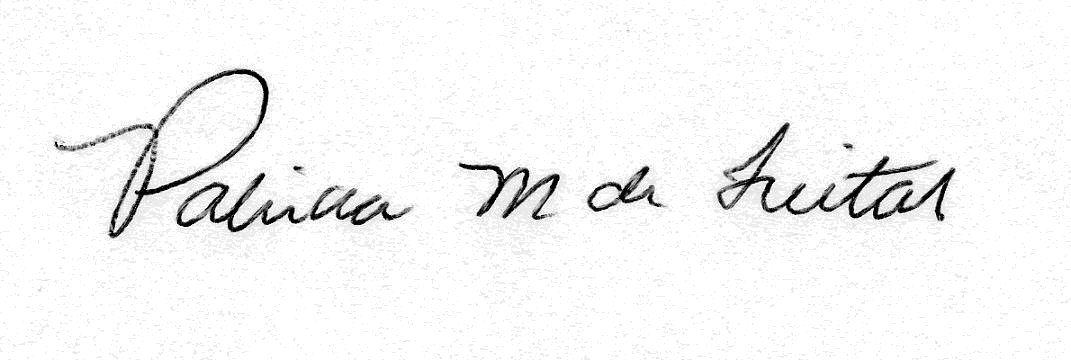 Patricia M de Freitas